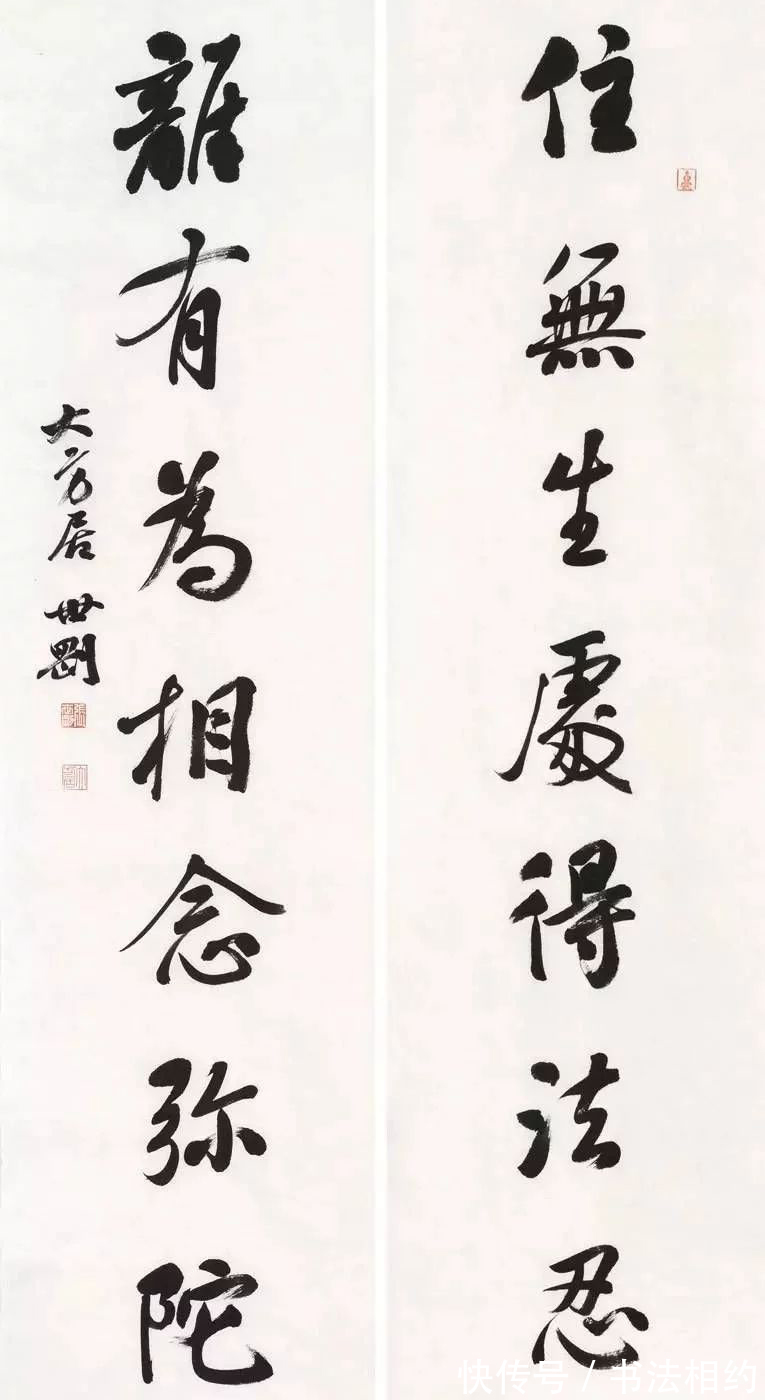 住無生處得法忍
離有為相念弥陀
大方居 世剛
快传号 / 书法相约